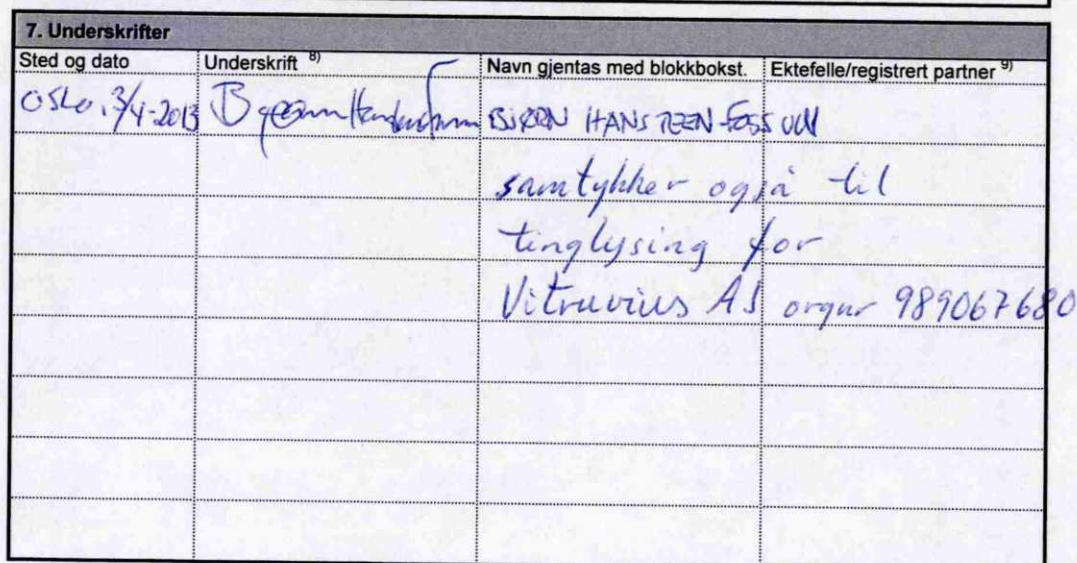 7. Underskrifter
Sted og dato Underskrift 8) Navn gjentas med blokkbokst. Ektefelle/registrert partner 9)
Oslo, 3/4-2013 BJØRN HANSTEEN-FOSSUM
samtykker også til
tinglysing for
Vitruvius AS orgnr 989067680